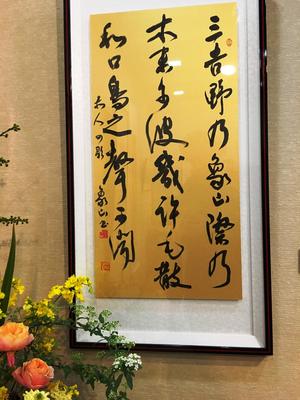 三吉野乃象山際乃
木末尓波幾許毛散
和口鳥之聲可聞
赤人の歌 象山書